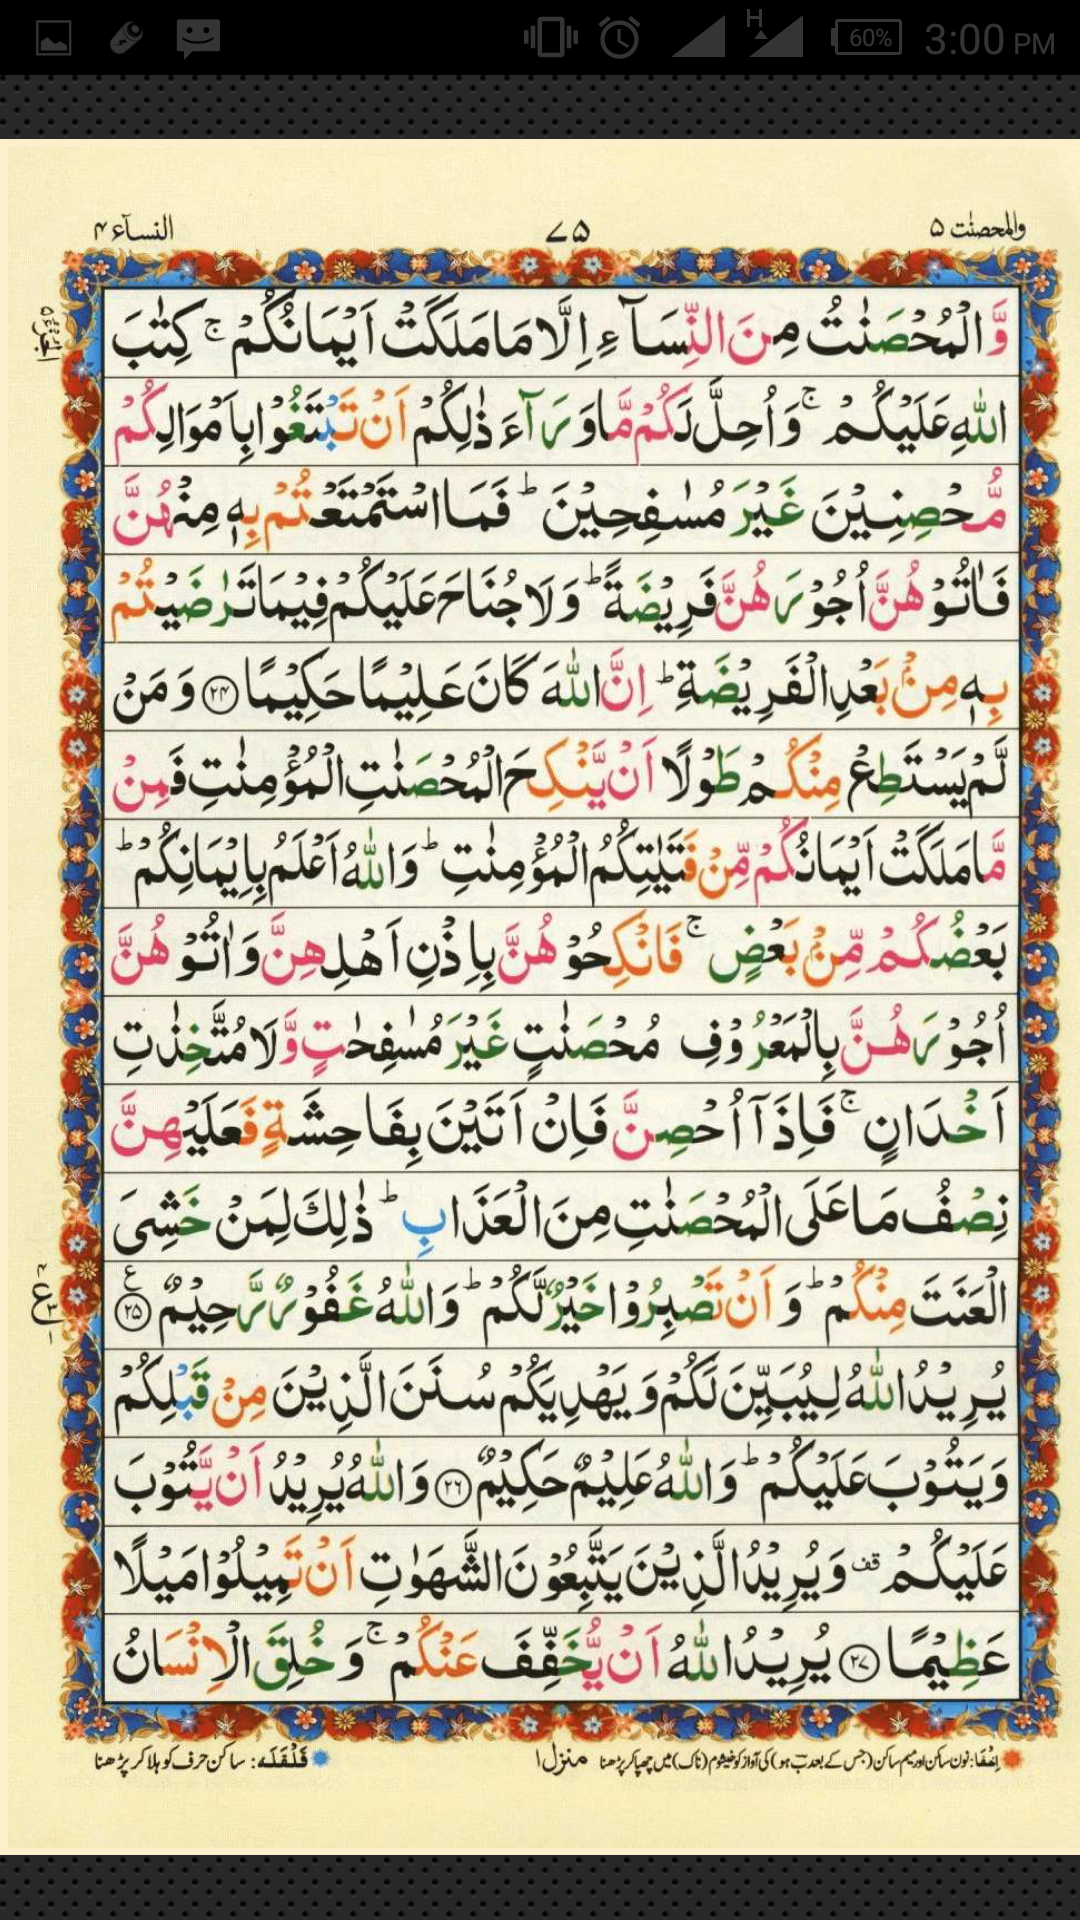 60% 3:00 PM
والمحصنٰت ۵ ۷۵ النسآء ۴
الجزء ۵
وَّالْمُحْصَنٰتُ مِنَ النِّسَآءِ اِلَّا مَا مَلَكَتْ اَيْمَانُكُمْ ۚ كِتٰبَ
اللّٰهِ عَلَيْكُمْ ۚ وَاُحِلَّ لَكُمْ مَّا وَرَآءَ ذٰلِكُمْ اَنْ تَبْتَغُوْا بِاَمْوَالِكُمْ
مُّحْصِنِيْنَ غَيْرَ مُسٰفِحِيْنَ ؕ فَمَا اسْتَمْتَعْتُمْ بِهٖ مِنْهُنَّ
فَاٰتُوْهُنَّ اُجُوْرَهُنَّ فَرِيْضَةً ؕ وَلَا جُنَاحَ عَلَيْكُمْ فِيْمَا تَرٰضَيْتُمْ
بِهٖ مِنْۢ بَعْدِ الْفَرِيْضَةِ ؕ اِنَّ اللّٰهَ كَانَ عَلِيْمًا حَكِيْمًا ۲۴ وَمَنْ
لَّمْ يَسْتَطِعْ مِنْكُمْ طَوْلًا اَنْ يَّنْكِحَ الْمُحْصَنٰتِ الْمُؤْمِنٰتِ فَمِنْ
مَّا مَلَكَتْ اَيْمَانُكُمْ مِّنْ فَتَيٰتِكُمُ الْمُؤْمِنٰتِ ؕ وَاللّٰهُ اَعْلَمُ بِاِيْمَانِكُمْ ؕ
بَعْضُكُمْ مِّنْۢ بَعْضٍ ۚ فَانْكِحُوْهُنَّ بِاِذْنِ اَهْلِهِنَّ وَاٰتُوْهُنَّ
اُجُوْرَهُنَّ بِالْمَعْرُوْفِ مُحْصَنٰتٍ غَيْرَ مُسٰفِحٰتٍ وَّلَا مُتَّخِذٰتِ
اَخْدَانٍ ۚ فَاِذَآ اُحْصِنَّ فَاِنْ اَتَيْنَ بِفَاحِشَةٍ فَعَلَيْهِنَّ
نِصْفُ مَا عَلَى الْمُحْصَنٰتِ مِنَ الْعَذَابِ ؕ ذٰلِكَ لِمَنْ خَشِىَ
الْعَنَتَ مِنْكُمْ ؕ وَاَنْ تَصْبِرُوْا خَيْرٌ لَّكُمْ ؕ وَاللّٰهُ غَفُوْرٌ رَّحِيْمٌ ۲۵ ع
يُرِيْدُ اللّٰهُ لِيُبَيِّنَ لَكُمْ وَيَهْدِيَكُمْ سُنَنَ الَّذِيْنَ مِنْ قَبْلِكُمْ
وَيَتُوْبَ عَلَيْكُمْ ؕ وَاللّٰهُ عَلِيْمٌ حَكِيْمٌ ۲۶ وَاللّٰهُ يُرِيْدُ اَنْ يَّتُوْبَ
عَلَيْكُمْ قف وَيُرِيْدُ الَّذِيْنَ يَتَّبِعُوْنَ الشَّهَوٰتِ اَنْ تَمِيْلُوْا مَيْلًا
عَظِيْمًا ۲۷ يُرِيْدُ اللّٰهُ اَنْ يُّخَفِّفَ عَنْكُمْ ۚ وَخُلِقَ الْاِنْسَانُ
اِخفَا: نون ساکن اور میم ساکن (جس کے بعد ب ہو) کی آواز کو خیشوم (ناک) میں چھپا کر پڑھنا منزل ۱ قَلْقَلَه: ساکن حرف کو ہلا کر پڑھنا